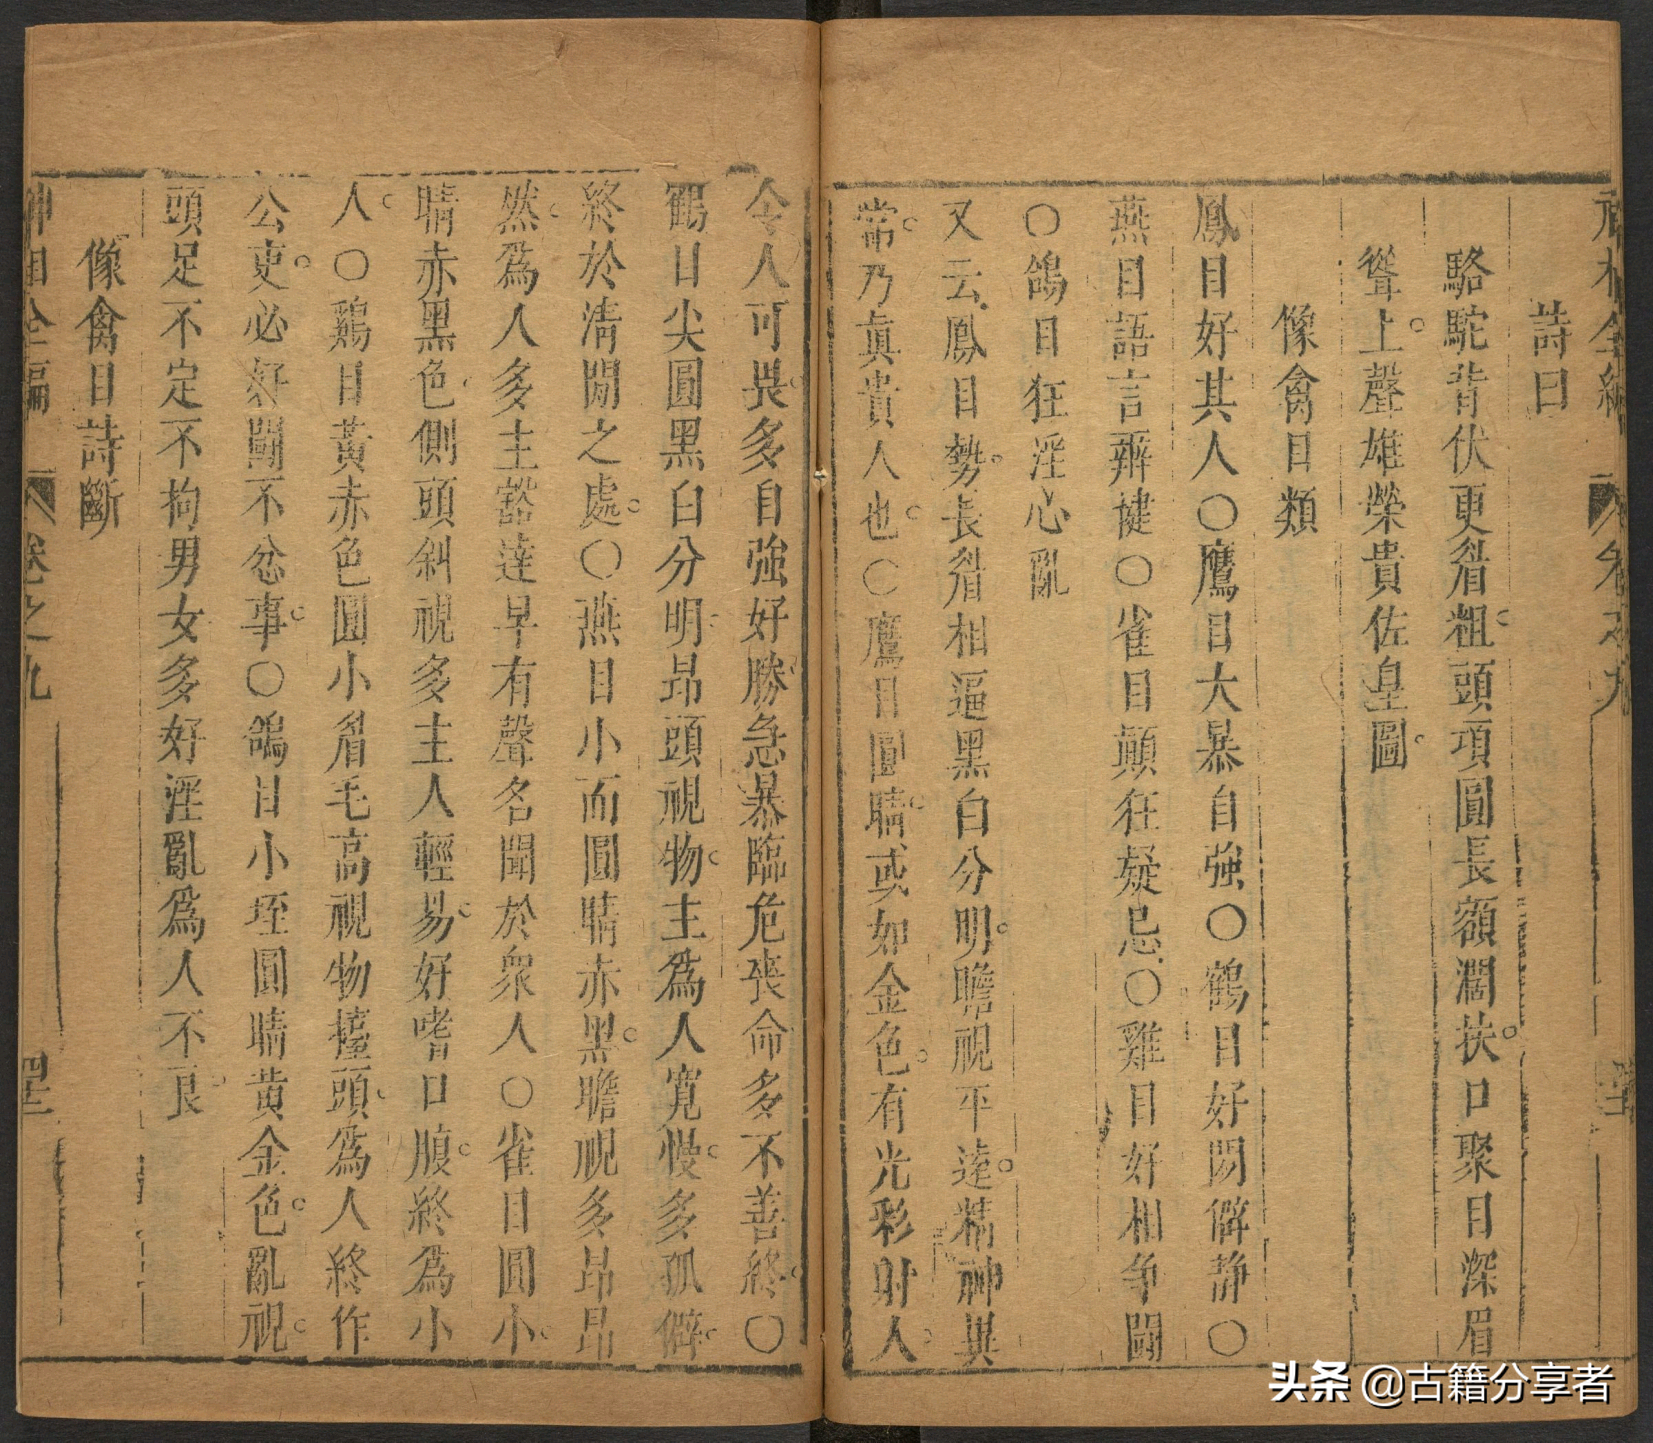 詩曰
駱駝背伏更眉粗頭項圓長額濶扶口聚目深眉
聳上聲雄榮貴佐皇圖
像禽目類
鳳目好其人〇鷹目大暴自強〇鶴目好閑僻静〇
燕目語言辯捷〇雀目顛狂疑忌〇雞目好相争鬪
〇鴿目狂淫心亂
又云鳳目勢長眉相逼黑白分明瞻視平遠精神異
常乃真貴人也〇鷹目圓睛或如金色有光彩射人
令人可畏多自強好勝急暴臨危丧命多不善終〇
鶴目尖圓黑白分明昂頭視物主爲人寛慢多孤僻
終於清閒之處〇燕目小而圓睛赤黑瞻視多昂昂
然爲人多主豁達早有聲名聞於衆人〇雀目圓小
睛赤黑色側頭斜視多主人輕易好嗜口腹終爲小
人〇鷄目黃赤色圓小眉毛高視物擡頭爲人終作
公吏必好鬪不忿事〇鴿目小㘶圓睛黄金色亂視
頭足不定不拘男女多好淫亂爲人不良
像禽目詩斷
神相全編 卷之九
头条 @古籍分享者